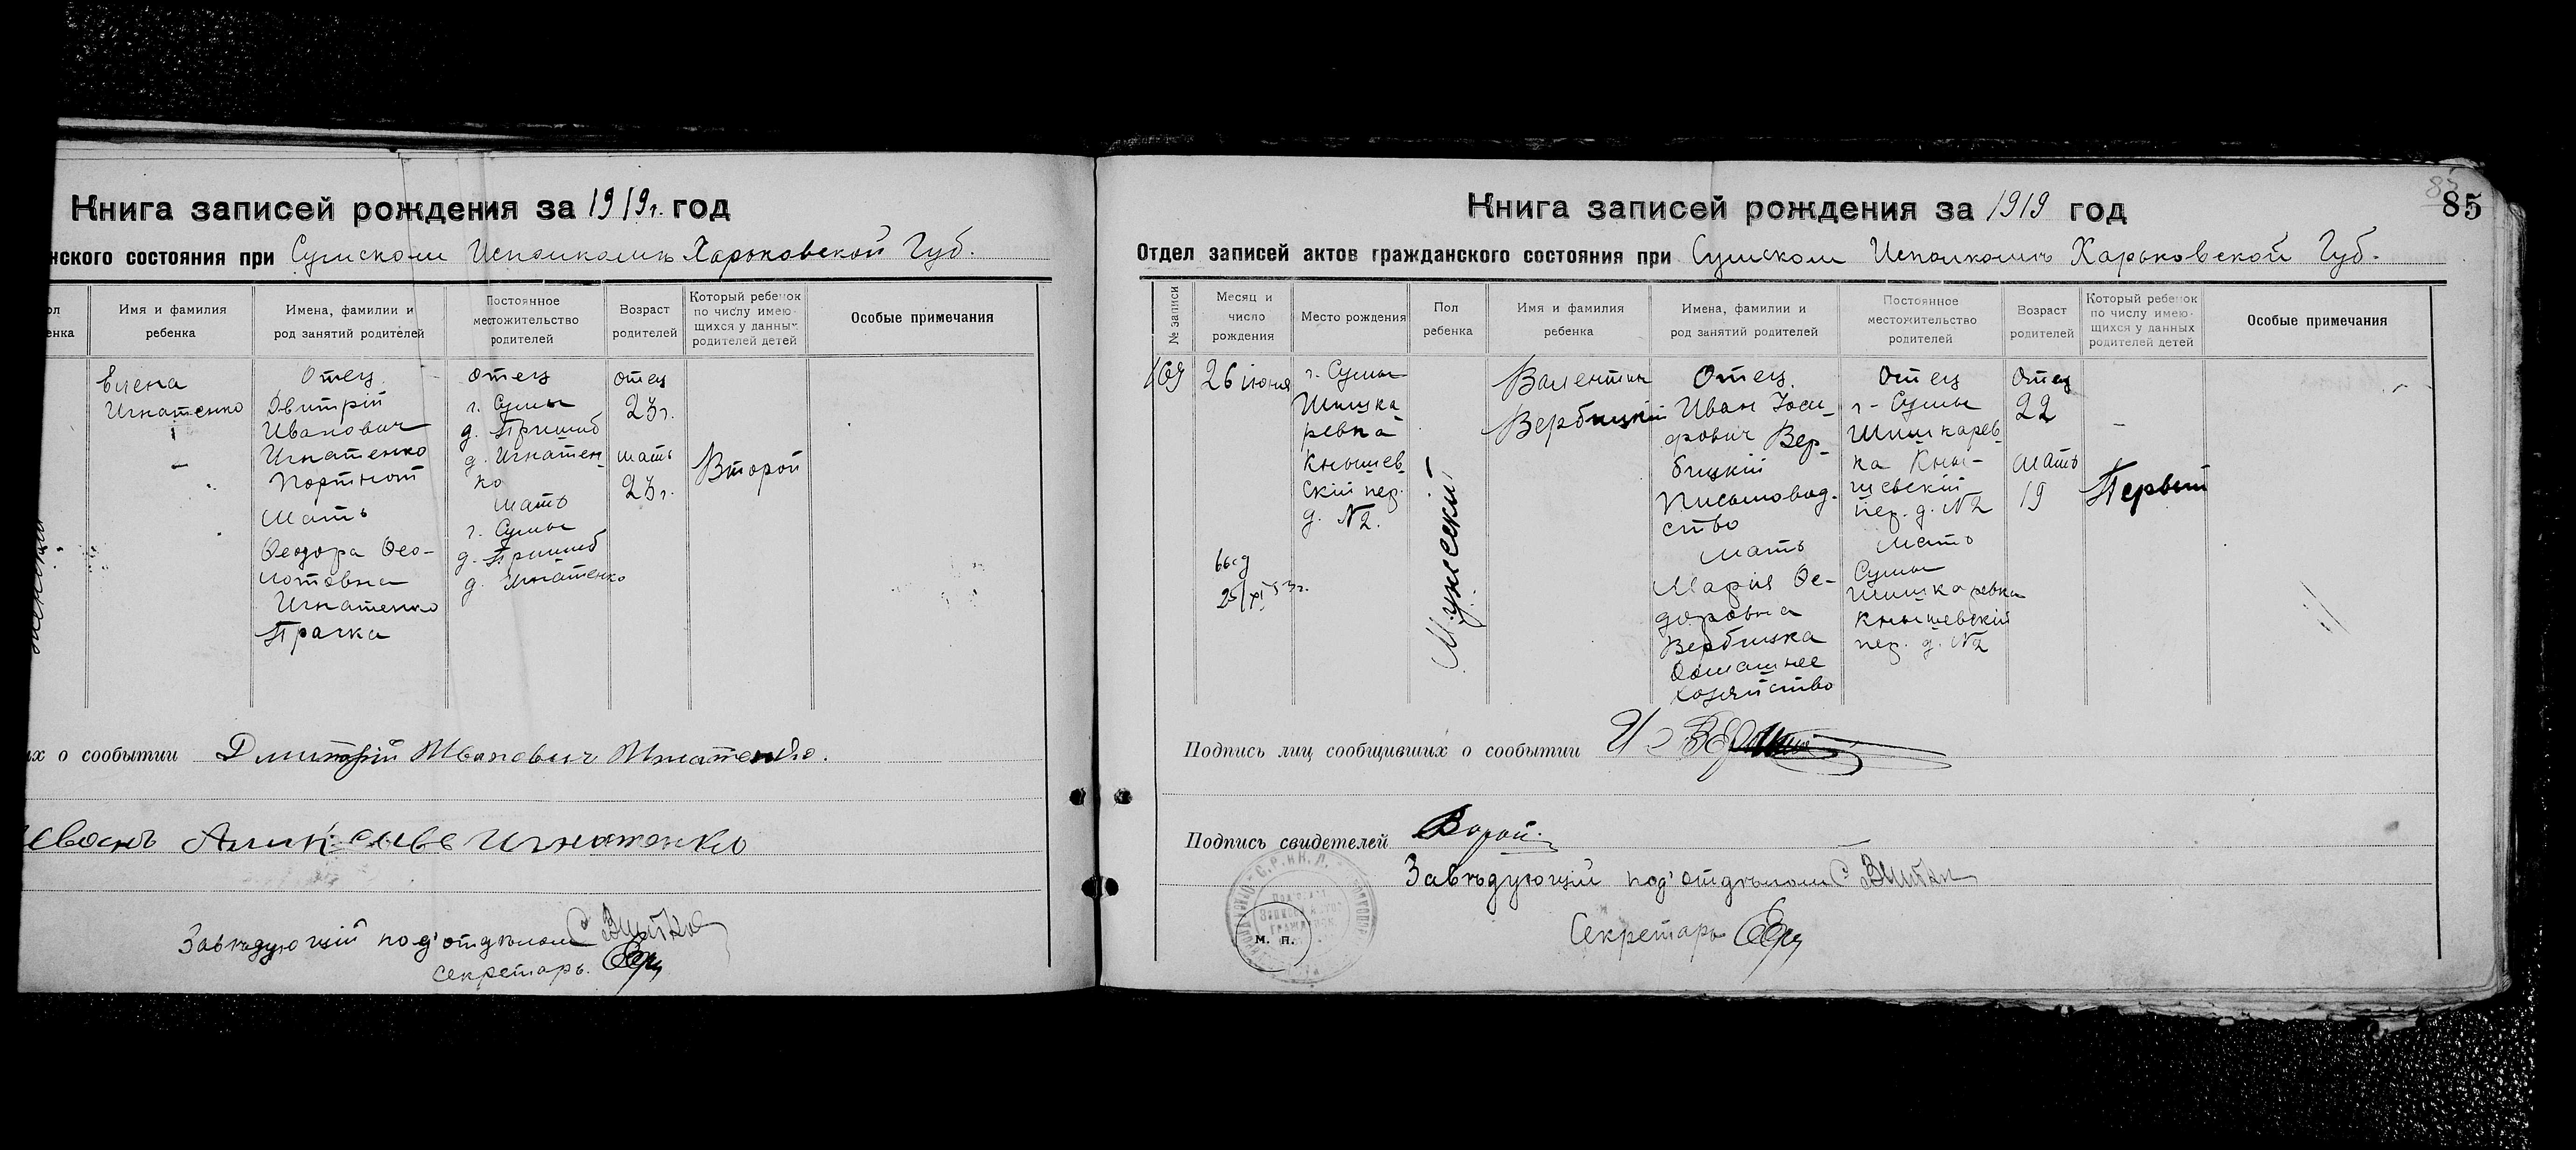 Книга записей рождения за 1919г. год
нского состояния при Сумском Исполкомъ Харьковской Губ.
Имя и фамилия ребенка
Имена, фамилии и род занятий родителей
Постоянное местожительство родителей
Возраст родителей
Который ребенок по числу имею-щихся у данных родителей детей
Особые примечания
Елена
Игнатенко
Отец
Дмитрій
Иванович
Игнатенко
Портной
Мать
Феодора Фео-
Игнатенко
Прачка
отец
г. Сумы
д. Игнатен-
ко
мать
г. Сумы
д. Игнатенко
отец
23г.
мать
23г.
Второй
их о сообытии Дмитрій Иванович Игнатенко.
Игнатенко
Завѣдующій под'отдѣлом
секретарь.
85
Книга записей рождения за 1919 год
Отдел записей актов гражданского состояния при Сумском Исполкомъ Харьковской Губ.
№ записи
Месяц и число рождения
Место рождения
Пол ребенка
Имя и фамилия ребенка
Имена, фамилии и род занятий родителей
Постоянное местожительство родителей
Возраст родителей
Который ребенок по числу имею-щихся у данных родителей детей
Особые примечания
169
26 іюня
г. Сумы
Шишка
ревка
Кнышев
скій пер.
д. №2.
Мужеский
Валентин
Вербицкій
Отец.
Иван Іоси-
фович Вер-
бицкій
Письмовод-
ство
мать
Марія Фе-
доровна
Вербицка
Домашнее
хозяйство
Отец
г. Сумы
Шишкарев
ка Кны-
шевскій
пер. д. №2
мать
Сумы
Шишкаревка
Кнышевскій
пер. д. №2
Отец
22
мать
19
Первый
Подпись лиц сообщивших о сообытии
Подпись свидетелей
Завѣдующій под'отдѣлом
Секретарь
М. П.